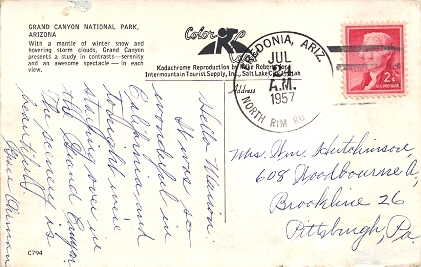 GRAND CANYON NATIONAL PARK,
ARIZONA
With a mantle of winter snow and
hovering storm clouds, Grand Canyon
presents a study in contrasts—serenity
and an awesome spectacle—in each
view.
Color
Card
Kodachrome Reproduction by Mike Roberts
Intermountain Tourist Supply, Inc., Salt Lake City, Utah
Address
FREDONIA, ARIZ.
JUL
A.M.
1957
NORTH RIM RU
2¢
U.S. POSTAGE
Hello Marion,
It was so
wonderful in
California and
tonight we're
staying over in
the Grand Canyon
The scenery is
beautiful
Mrs. Wm. Hutchinson
608 Woodbourne A
Brookline 26
Pittsburgh, Pa
C794